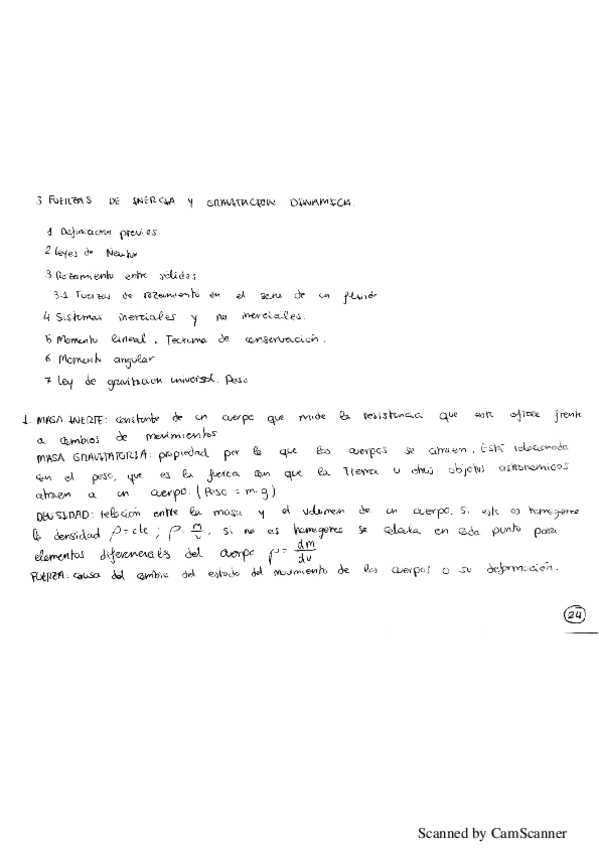 3 FUERZAS DE INERCIA Y GRAVITACION DINAMICA.
1 Definiciones previas
2 Leyes de Newton
3 Rozamiento entre solidos
3.1 Fuerzas de rozamiento en el seno de un fluido
4 Sistemas inerciales y no inerciales.
5 Momento lineal. Teorema de conservación.
6 Momento angular
7 Ley de gravitacion universal. Peso
1. MASA INERTE: constante de un cuerpo que mide la resistencia que este ofrece frente
a cambios de movimientos
MASA GRAVITATORIA: propiedad por la que los cuerpos se atraen. Está relacionada
con el peso, que es la fuerza con que la Tierra u otros objetos astronomicos
atraen a un cuerpo. (Peso = m·g)
DENSIDAD: relación entre la masa y el volumen de un cuerpo. Si este es homogeneo
la densidad ρ=cte ; ρ= m/v, si no es homogeneo se calcula en cada punto para
elementos diferenciales del cuerpo ρ = dm/dv
FUERZA: causa del cambio del estado del movimiento de los cuerpos o su deformación.
24
Scanned by CamScanner